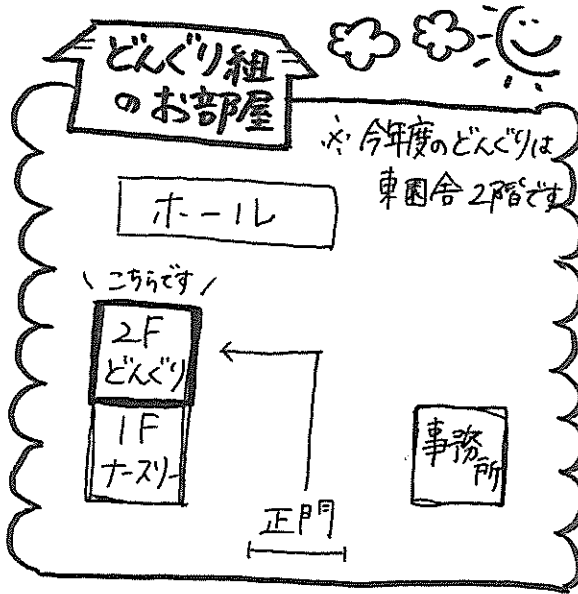 どんぐり組
のお部屋
※ 今年度のどんぐりは
東園舎2階です
ホール
\ こちらです /
2F
どんぐり
1F
ナースリー
事務
所
正門